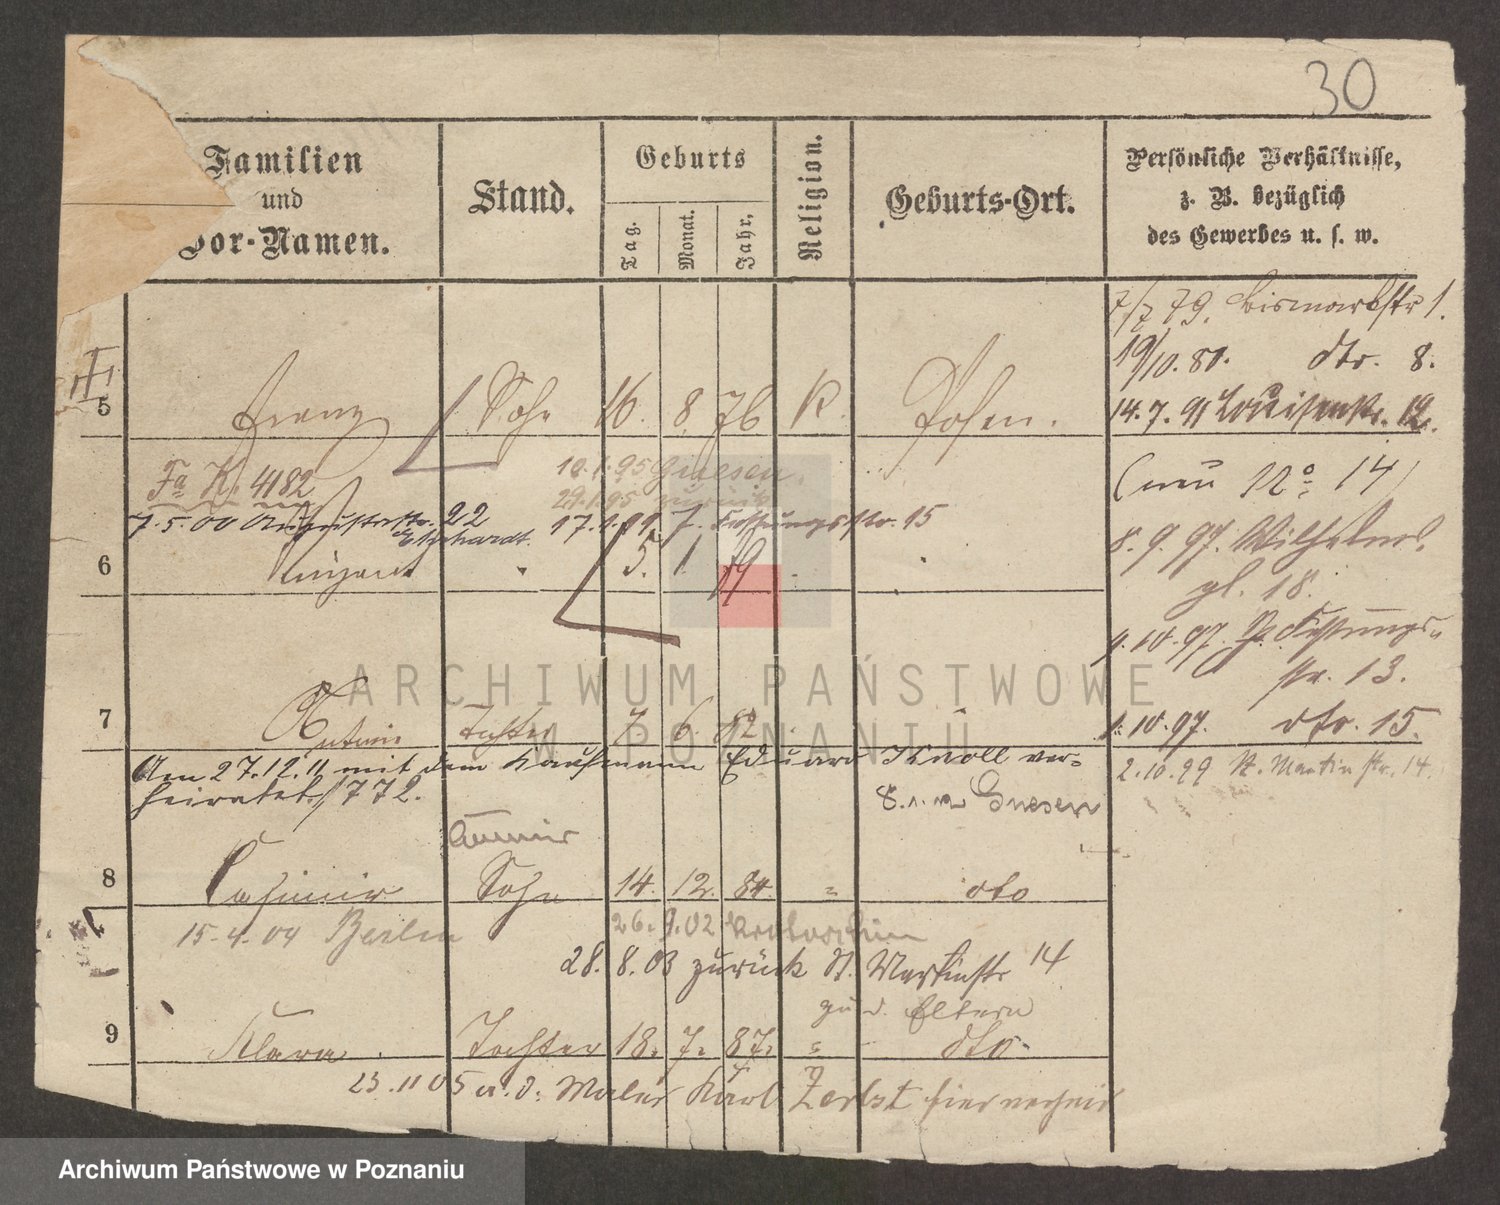 30
Familien
und
Vor-Namen.
Stand.
Geburts
Tag.
Monat.
Jahr,
Religion.
Geburts-Ort.
Persönliche Verhältnisse,
z. B. bezüglich
des Gewerbes u. s. w.
7/7 79. Bismarkstr 1.
19/10. 80. dto. 8.
14. 7. 91 Louisenstr. 12.
5 Franz Sohn 16. 8. 76 K. Posen.
(neu No 14)
Fa K. 4182
10.1.95 Gnesen.
29.1.95 zurück
7.5.00 Augustastr. 22
17.1.99. 7. Festungsstr. 15
Ehrhardt.
8. 9. 97. Wilhelms-
pl. 18.
6 5. 1. 79
1.10.97. Festungs-
str. 13.
7 Tochter 7. 6. 82
1.10.97. dto. 15.
Am 27.12.11 mit dem Kaufmann Eduard Knoll ver-
heiratet. /772.
2.10.99 St. Martinstr. 14.
Gnesen
8 Casimir Sohn 14. 12. 84. " dto
15.4.04 Berlin
26.9.02 Krotoschin
28. 8. 03 zurück St. Martinstr 14
zu d. Eltern
9 Klara Tochter 18. 7. 87. " dto.
23.11 05 a. d. Maler Karl Zerbst hier verheir
ARCHIWUM PAŃSTWOWE
W POZNANIU
Archiwum Państwowe w Poznaniu